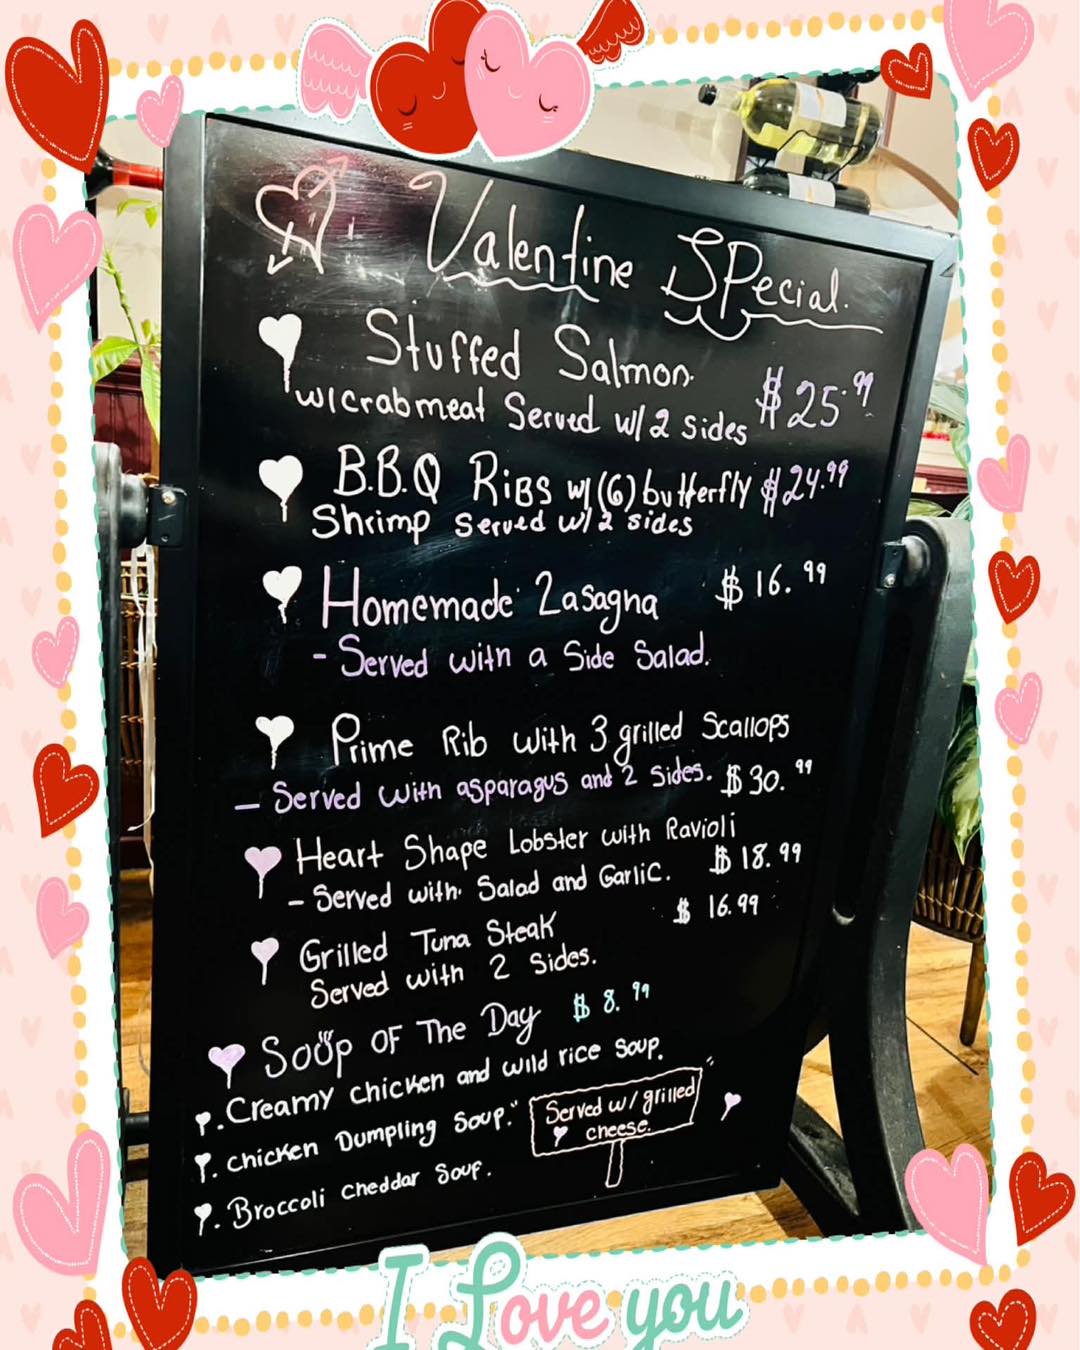 Valentine SPecial.
Stuffed Salmon
w/crabmeat Served w/2 sides $25.99
B.B.Q Ribs w/(6) butterfly $24.99
Shrimp served w/ 2 sides
Homemade Lasagna $16.99
- Served with a Side Salad.
Prime Rib with 3 grilled Scallops
- Served with asparagus and 2 Sides. $30.99
Heart Shape Lobster with Ravioli
- Served with Salad and Garlic. $18.99
Grilled Tuna Steak $16.99
Served with 2 Sides.
Soup Of The Day $8.99
Creamy Chicken and wild rice Soup.
Chicken Dumpling Soup.
Served w/ grilled
cheese.
Broccoli Cheddar Soup.
I Love you